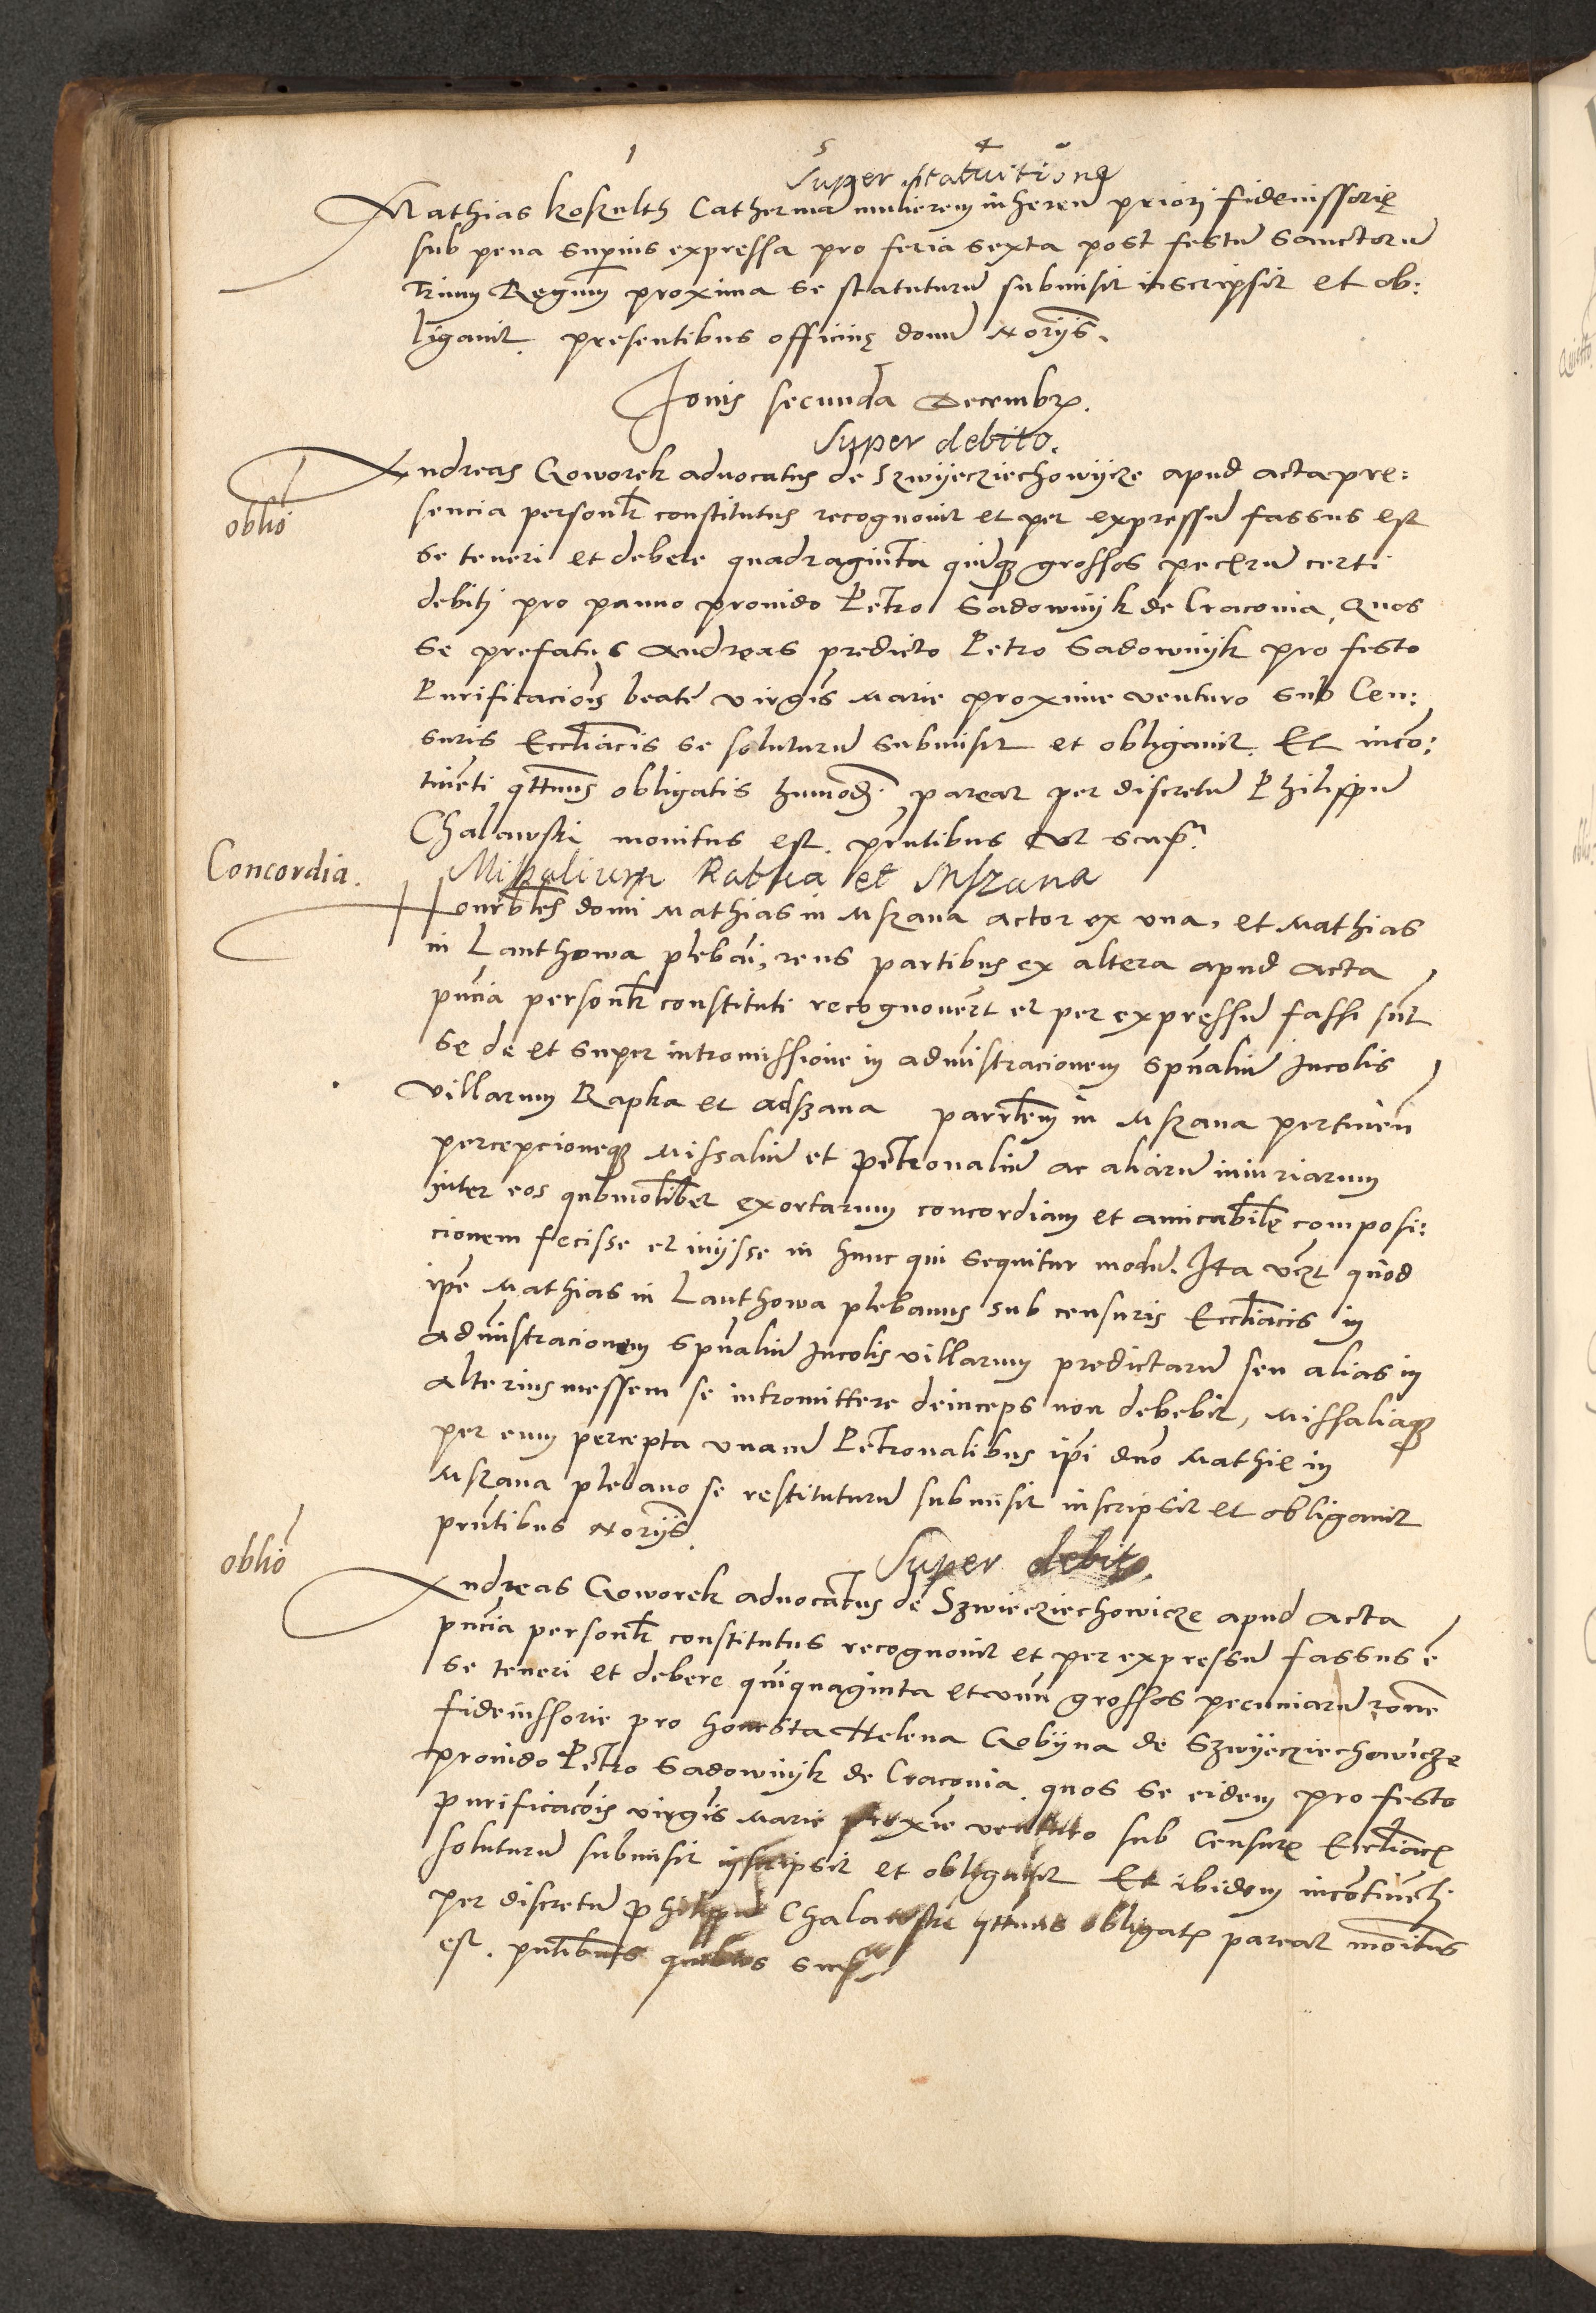 1 5 4
Super statuitione
Mathias koszulth Catherinā mulierem inherenđ priori fideiussorię
sub pena supius expressa pro feria sexta post festū Sanctorū
Trium Regum proxima se statuturū submisit inscripsit et ob:
ligavit. presentibus officiuę domū Noriis.
Jovis secunda Decembr.
Super debito.
oblio
Andreas Goworek advocatus de Szwyeciechowycze apud acta pre:
sencia personlr constitutus recognovit et per expressū fassus est
se teneri et debere quadraginta quinqz grossos peccerū certi
debiti pro panno provido Petro Sadowniyk de Cracovia, quos
se prefatus Andreas predicto Petro Sadowniyk pro festo
Purificaciois beate virgis Marie proxime venturo sub Cen:
suris Eccliacis se soluturū submisit et obligavit. Et incō:
tinēti qttmus obligatis humodi pareat per discretū Philippū
Chalawski monitus est. pntibus qr supr.
Concordia.
Missalium Rabka et Mszana
Honrbles domi Mathias in Mszana actor ex una, et Mathias
in Lanthowa plebāi, reus partibus ex altera apud acta
pncia personlr constituti recognovert et per expressū fassi sūt
se de et super intromissione in admistracionem spūaliū Incolis
villarum Rapka et Adszana parrlem in Mszana pertineñ
percepcioneqz Missaliū et petronaliū ac aliarū iniuriarum
inter eos qubmolibet exortarum concordiam et amicabile composi:
cionem fecisse et iniisse in hunc qui sequitur modū. Ita vczt quod
ipe Mathias in Lanthowa plebanus sub censuris Eccliacis in
administracionem spūaliū Incolis villarum predictarū seu alias in
alterius messem se intromittere deinceps non debebit, Missaliaqz
per eum percepta unacū Petronalibus ipi dno Mathie in
Mszana plebano se restituturū submisit inscripsit et obligavit
pnūtibus Noriis.
Super debito.
oblio
Andreas Goworek advocatus de Szwiecziechowicze apud acta
pncia personlr constitutus recognovit et per expressū fassus ē
se teneri et debere quinquaginta et unū grossos pecuniarū rone
fideiussorie pro honesta Helena Gobyna de Szwyecziechowicze
provido Petro Sadowniyk de Cracovia. quos se eidem pro festo
purificacois virgis Marie proxie venturo sub Censurę Eccliacę
soluturū submisit inscripsit et obligavit Et ibidem incontinēti
per discretū Philippū Chalawski qttmus obligatę pareat monitus
est. pntibus quibus supr